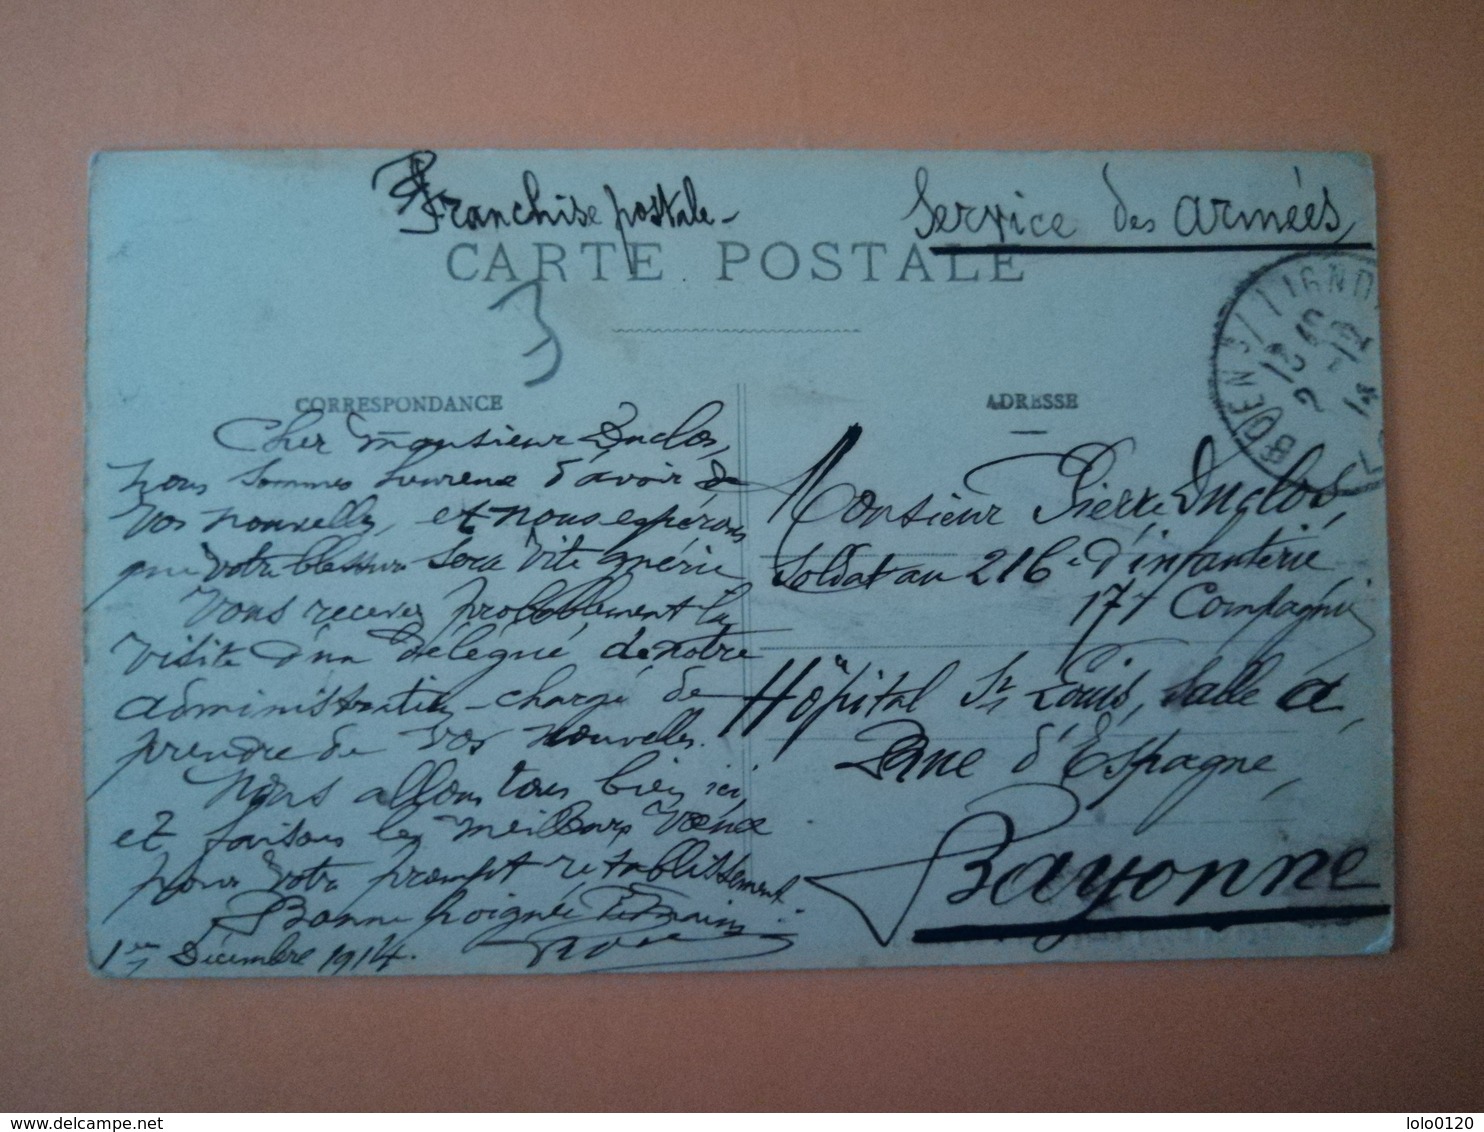 Franchise postale -
Service des armées
CARTE POSTALE
3
BOEN S/ LIGNON
13 45
2 - 12
14
CORRESPONDANCE
ADRESSE
Cher monsieur Duclos,
nous sommes heureux d'avoir de
vos nouvelles, et nous espérons
que votre blessure sera vite guérie
Vous recevez probablement la
visite d'un délégué de notre
administration chargé de
prendre de vos nouvelles.
Nous allons tous bien ici,
et faisons les meilleurs vœux
pour votre prompt rétablissement
Bonne poignée de mains
1er Décembre 1914.
Monsieur Pierre Duclos
Soldat au 216e d'infanterie
17e Compagnie
Hôpital St Louis, salle A,
Rue d'Espagne,
Bayonne
delcampe.net
lolo0120